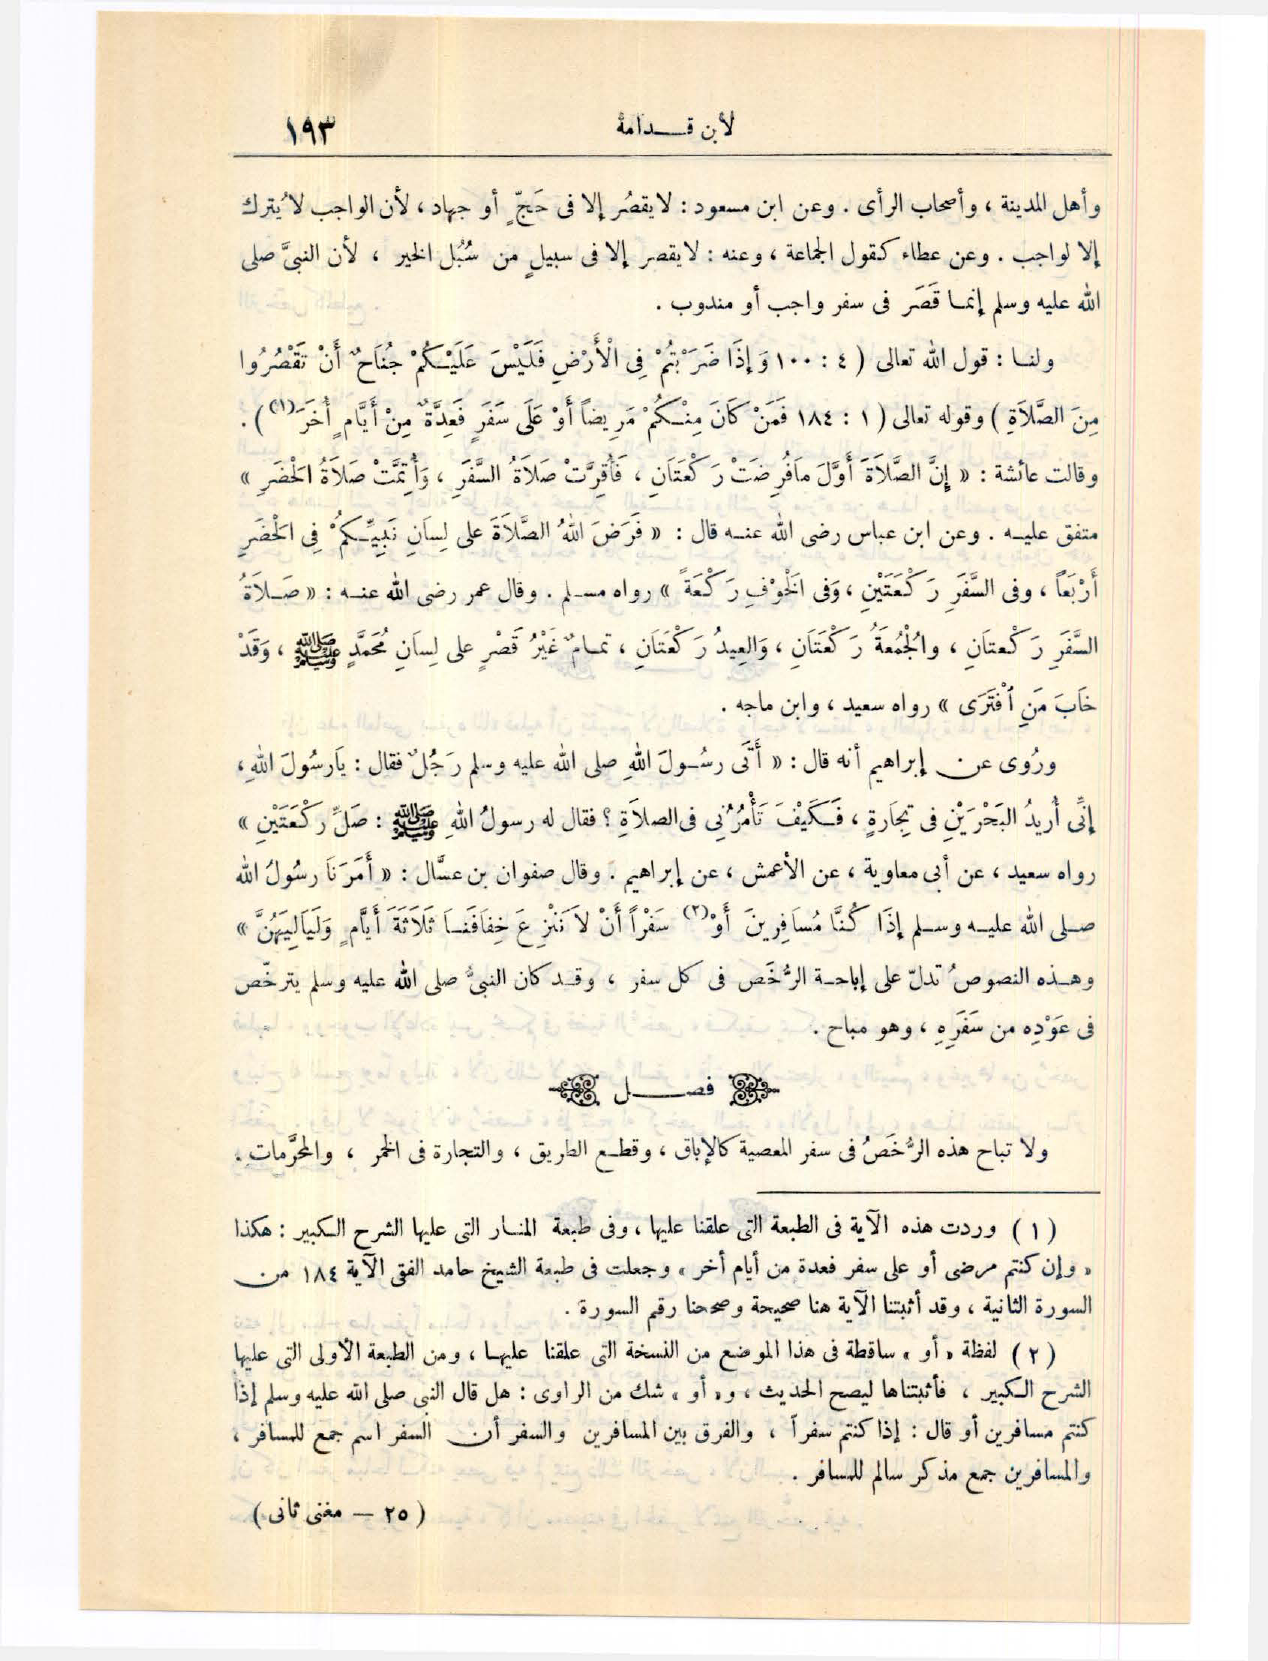 لابن قدامة
١٩٣
وأهل المدينة ، وأصحاب الرأى . وعن ابن مسعود : لا يقصُر إلا فى حَجّ ٍ أو جهاد ، لأن الواجب لا يُترك
إلا لواجب . وعن عطاء كقول الجماعة ، وعنه : لا يقصر إلا فى سبيلٍ من سُبُل الخير ، لأن النبىَّ صلى
الله عليه وسلم إنما قَصَر فى سفر واجب أو مندوب .
ولنا : قول الله تعالى ( ٤ : ١٠٠ وَإِذَا ضَرَبْتُمْ فِى الْأَرْضِ فَلَيْسَ عَلَيْكُمْ جُنَاحٌ أَنْ تَقْصُرُوا
مِنَ الصَّلاَةِ ) وقوله تعالى ( ١ : ١٨٤ فَمَنْ كَانَ مِنْكُمْ مَرِيضاً أَوْ عَلَى سَفَرٍ فَعِدَّةٌ مِنْ أَيَّامٍ أُخَرَ (١) ) .
وقالت عائشة : « إِنَّ الصَّلاَةَ أَوَّلَ مَافُرِضَتْ رَكْعَتَانِ ، فَأُقِرَّتْ صَلاَةُ السَّفَرِ ، وَأُتِمَّتْ صَلاَةُ الْحَضَرِ »
متفق عليه . وعن ابن عباس رضى الله عنه قال : « فَرَضَ اللهُ الصَّلاَةَ على لِسَانِ نَبِيِّكمُ ْ فِى الْحَضَرِ
أَرْبَعاً ، وفى السَّفَرِ رَكْعَتَيْنِ ، وَفى الْخَوْفِ رَكْعَةً » رواه مسلم . وقال عمر رضى الله عنه : « صَلاَةُ
السَّفَرِ رَكْعتَانِ ، والْجُمُعَةُ رَكْعَتَانِ ، وَالعِيدُ رَكْعَتَانِ ، تمامٌ غَيْرُ قَصْرٍ على لِسَانِ مُحَمَّدٍ ﷺ ، وَقَدْ
خَابَ مَنِ اُفْتَرَى » رواه سعيد ، وابن ماجه .
ورُوى عن إبراهيم أنه قال : « أَتَى رسُولَ اللهِ صلى الله عليه وسلم رَجُلٌ فقال : يَارسُولَ اللهِ ،
إِنِّى أُرِيدُ البَحْرَيْنِ فى تِجَارةٍ ، فَكَيْفَ تَأْمُرُنِى فى الصلاَةِ ؟ فقال له رسولُ اللهِ ﷺ : صَلِّ رَكْعَتَيْنِ »
رواه سعيد ، عن أبى معاوية ، عن الأعمش ، عن إبراهيم . وقال صفوان بن عسَّال : « أَمَرَنَا رسُولُ الله
صلى الله عليه وسلم إذَا كُنَّا مُسَافِرِينَ أَوْ (٢) سَفْراً أَنْ لاَ نَنْزِعَ خِفَافَنَا ثَلاَثَةَ أَيَّامٍ وَلَيَالِيَهُنَّ »
وهذه النصوصُ تدلّ على إباحة الرُّخَص فى كل سفر ، وقد كان النبىُّ صلى الله عليه وسلم يترخّص
فى عَوْدِه من سَفَرِهِ ، وهو مباح .
فصل
ولا تباح هذه الرُّخَصُ فى سفر المعصية كالإباق ، وقطع الطريق ، والتجارة فى الخمر ، والمحرَّمات .
( ١ ) وردت هذه الآية فى الطبعة التى علقنا عليها ، وفى طبعة المنار التى عليها الشرح الكبير : هكذا
« وإن كنتم مرضى أو على سفر فعدة من أيام أخر » وجعلت فى طبعة الشيخ حامد الفقى الآية ١٨٤ من
السورة الثانية ، وقد أثبتنا الآية هنا صحيحة وصححنا رقم السورة .
( ٢ ) لفظة « أو » ساقطة فى هذا الموضع من النسخة التى علقنا عليها ، ومن الطبعة الأولى التى عليها
الشرح الكبير ، فأثبتناها ليصح الحديث ، و« أو » شك من الراوى : هل قال النبى صلى الله عليه وسلم إذا
كنتم مسافرين أو قال : إذا كنتم سفراً ، والفرق بين المسافرين والسفر أن السفر اسم جمع للمسافر ،
والمسافرين جمع مذكر سالم للمسافر .
( ٢٥ — مغنى ثانى )